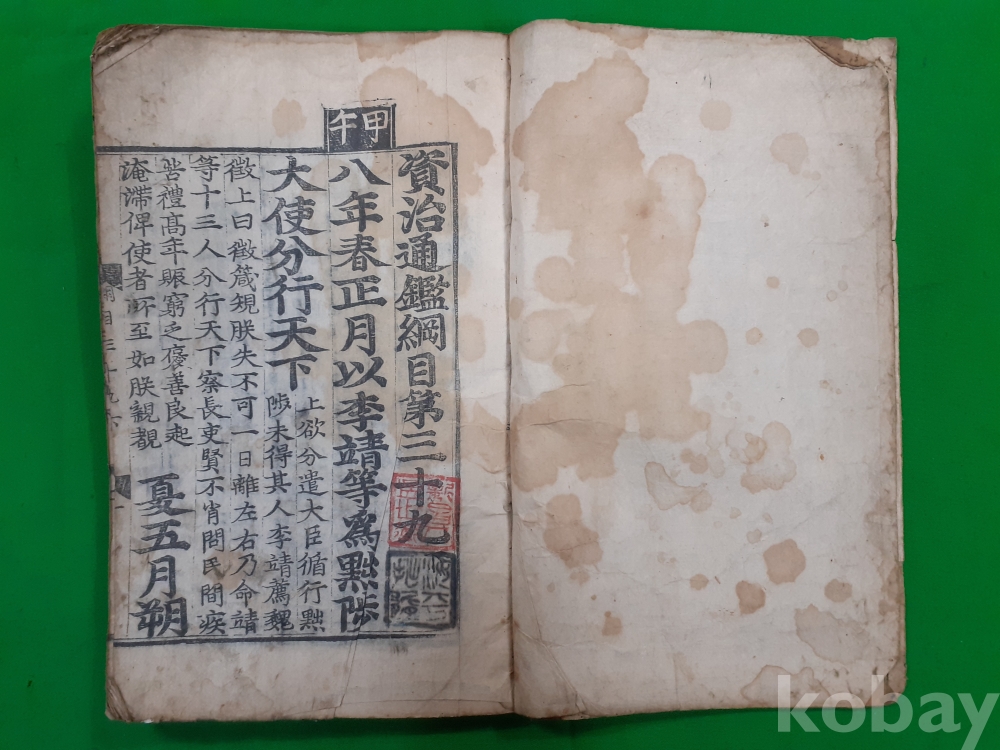 甲午
資治通鑑綱目第三十九
八年春正月以李靖等爲黜陟
大使分行天下
上欲分遣大臣循行黜
陟未得其人李靖薦魏
徵上曰徵箴規朕失不可一日離左右乃命靖
等十三人分行天下察長吏賢不肖問民間疾
苦禮高年賑窮乏褒善良起
淹滯俾使者所至如朕親覩
夏五月朔
kobay